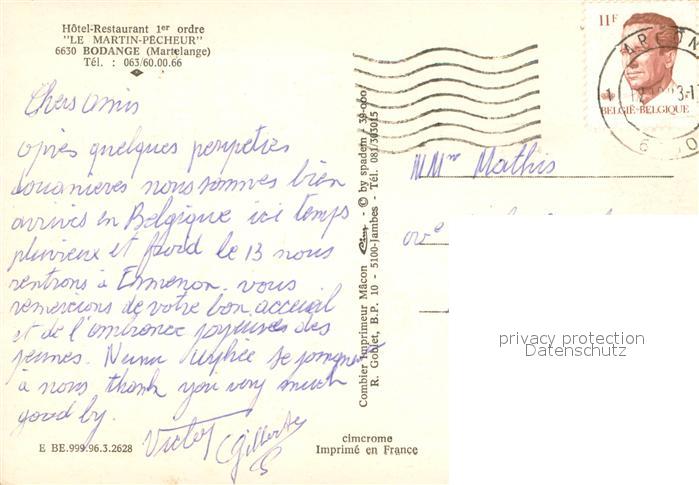 Hôtel-Restaurant 1er ordre
"LE MARTIN-PÊCHEUR"
6630 BODANGE (Martelange)
Tél. : 063/60.00.66
Chers amis
après quelques peripeties
douanieres nous sommes bien
arrives en Belgique ici temps
pluvieux et froid le 13 nous
rentrons à Ermenon. vous
remercions de votre bon accueil
et de l'ambiance joyeuse des
jeunes. se joignent
à nous thank you very much
good by.
Victor Gilberte
E BE.999.96.3.2628
Combier Imprimeur Mâcon - © by spadem - 39-000
R. Goblet, B.P. 10 - 5100-Jambes - Tél. 081/303015
cimcrome
Imprimé en France
11F
BELGIË-BELGIQUE
ARLON
M Mme Mathis
privacy protection
Datenschutz